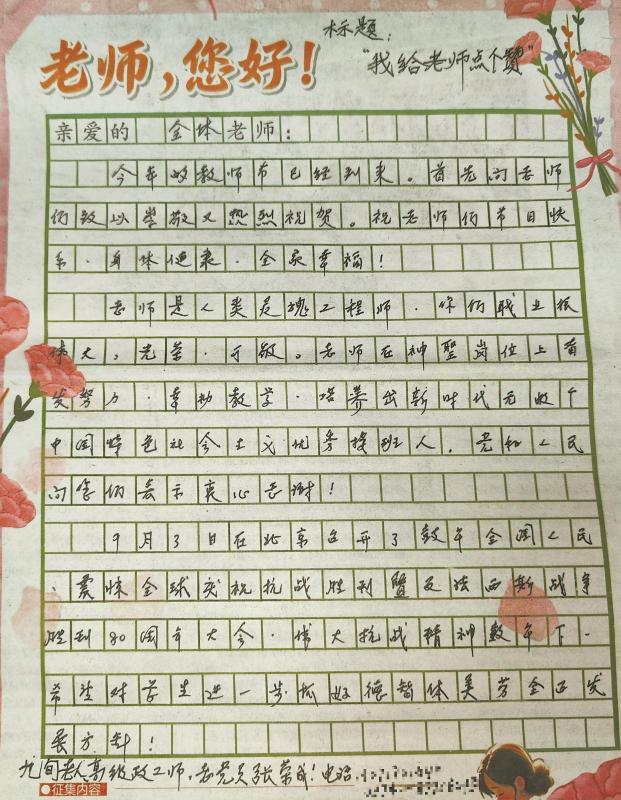 标题:
老师,您好!
“我给老师点个赞”
亲爱的 全体老师:
今年的教师节已经到来。首先向老师
们致以崇敬又热烈祝贺。祝老师们节日快
乐.身体健康.全家幸福!
老师是人类灵魂工程师.你们职业很
伟大,光荣.可敬。老师在神聖岗位上奋
发努力.辛勤教学.培养出新时代无数个
中国特色社会主义优秀接班人.党和人民
向您们表示衷心感谢!
9月3日在北京召开了数千全国人民
、震惊全球庆祝抗战胜利暨反法西斯战争
胜利80周年大会.伟大抗战精神鼓午下.
希望对学生进一步抓好德智体美劳全面发
展方针!
九旬老人高级政工师,老党员张荣成!电话
●征集内容